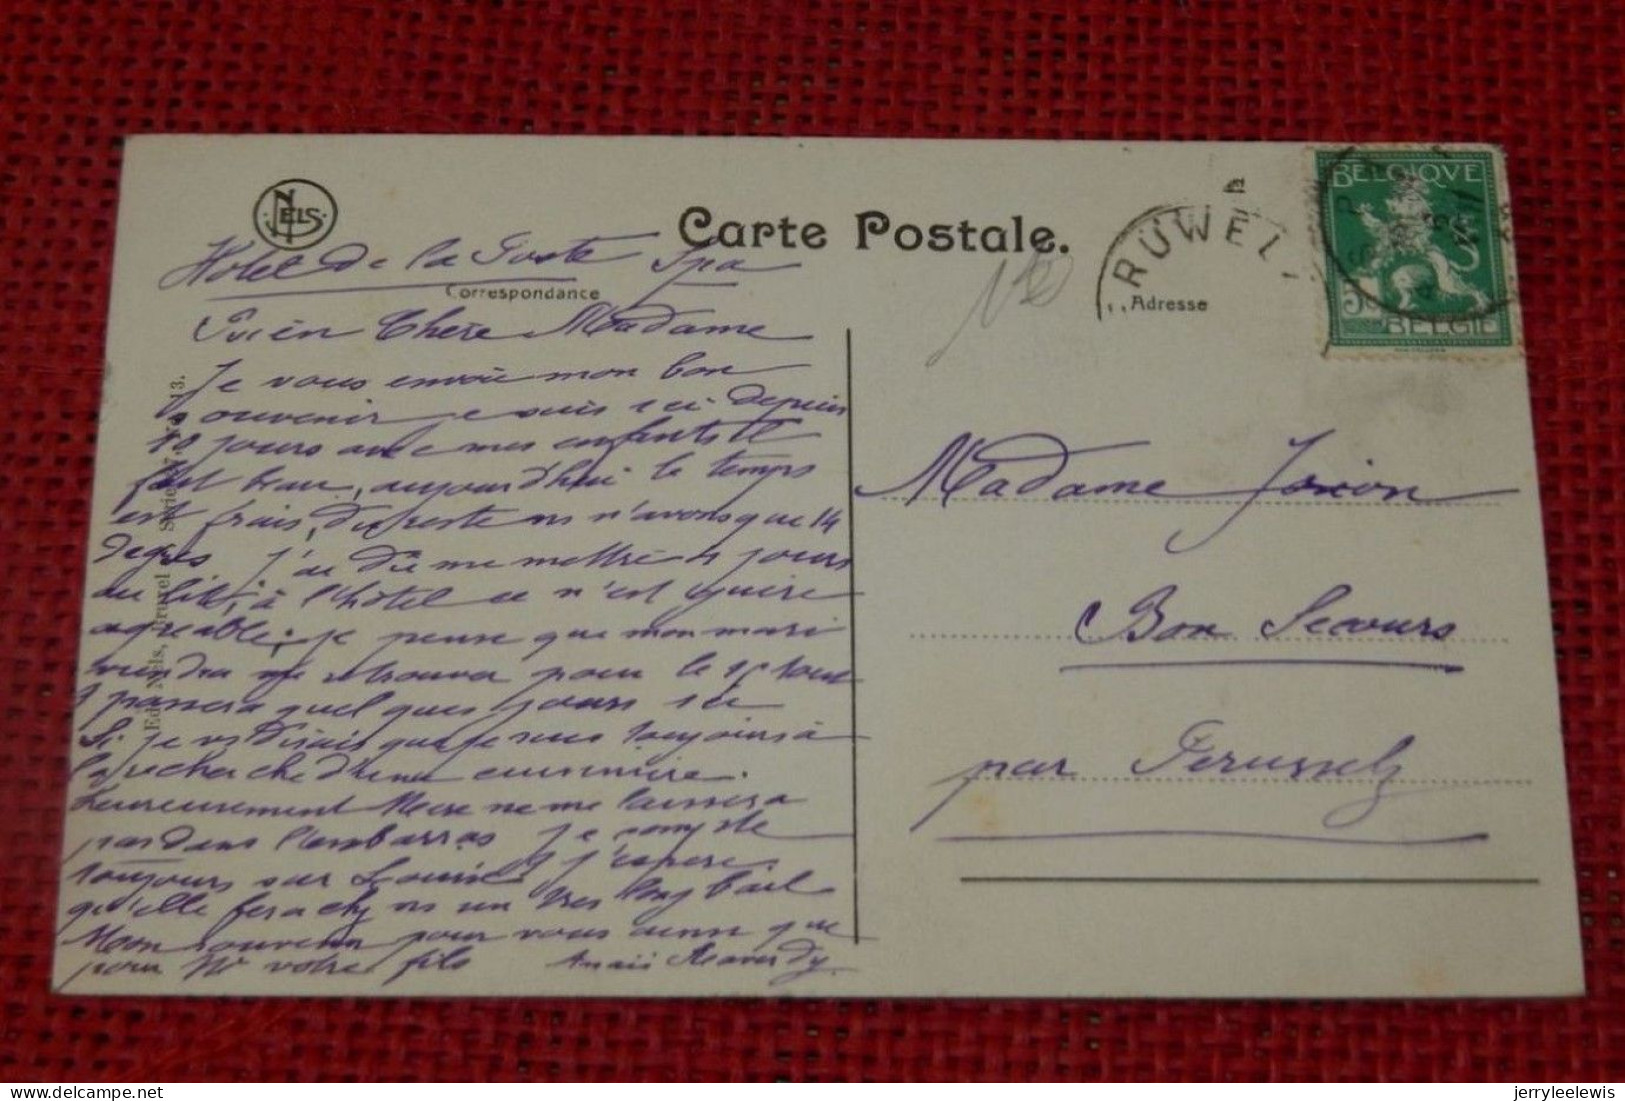 NELS
Carte Postale.
Hotel de la Poste Spa
Correspondance
Bien Chere Madame
Je vous envoie mon bon
souvenir je suis ici depuis
10 jours avec mes enfants il
fait beau, aujourd'hui le temps
est frais, du reste ns n'avons que 14
degrés j'ai dû me mettre 4 jours
au lit, à l'hôtel ce n'est guère
agreable; je pense que mon mari
viendra me retrouver pour le 15 Aout
& passera quelques jours ici
Si je vs disais que je suis toujours à
la recherche d'une cuisinière.
Heureusement Mere ne me laissera
pas dans l'embarras je compte
toujours sur Louise & j'espere
qu'elle fera chz ns un tres long bail
Mon souvenir pour vous ainsi que
pour Mr votre fils Anais
Ed. Nels, Bruxel Série 13.
Adresse
RUWEL
BELGIQUE
5c
BELGIË
Madame Jonion
Bon Secours
par Peruwelz
delcampe.net
jerryleelewis